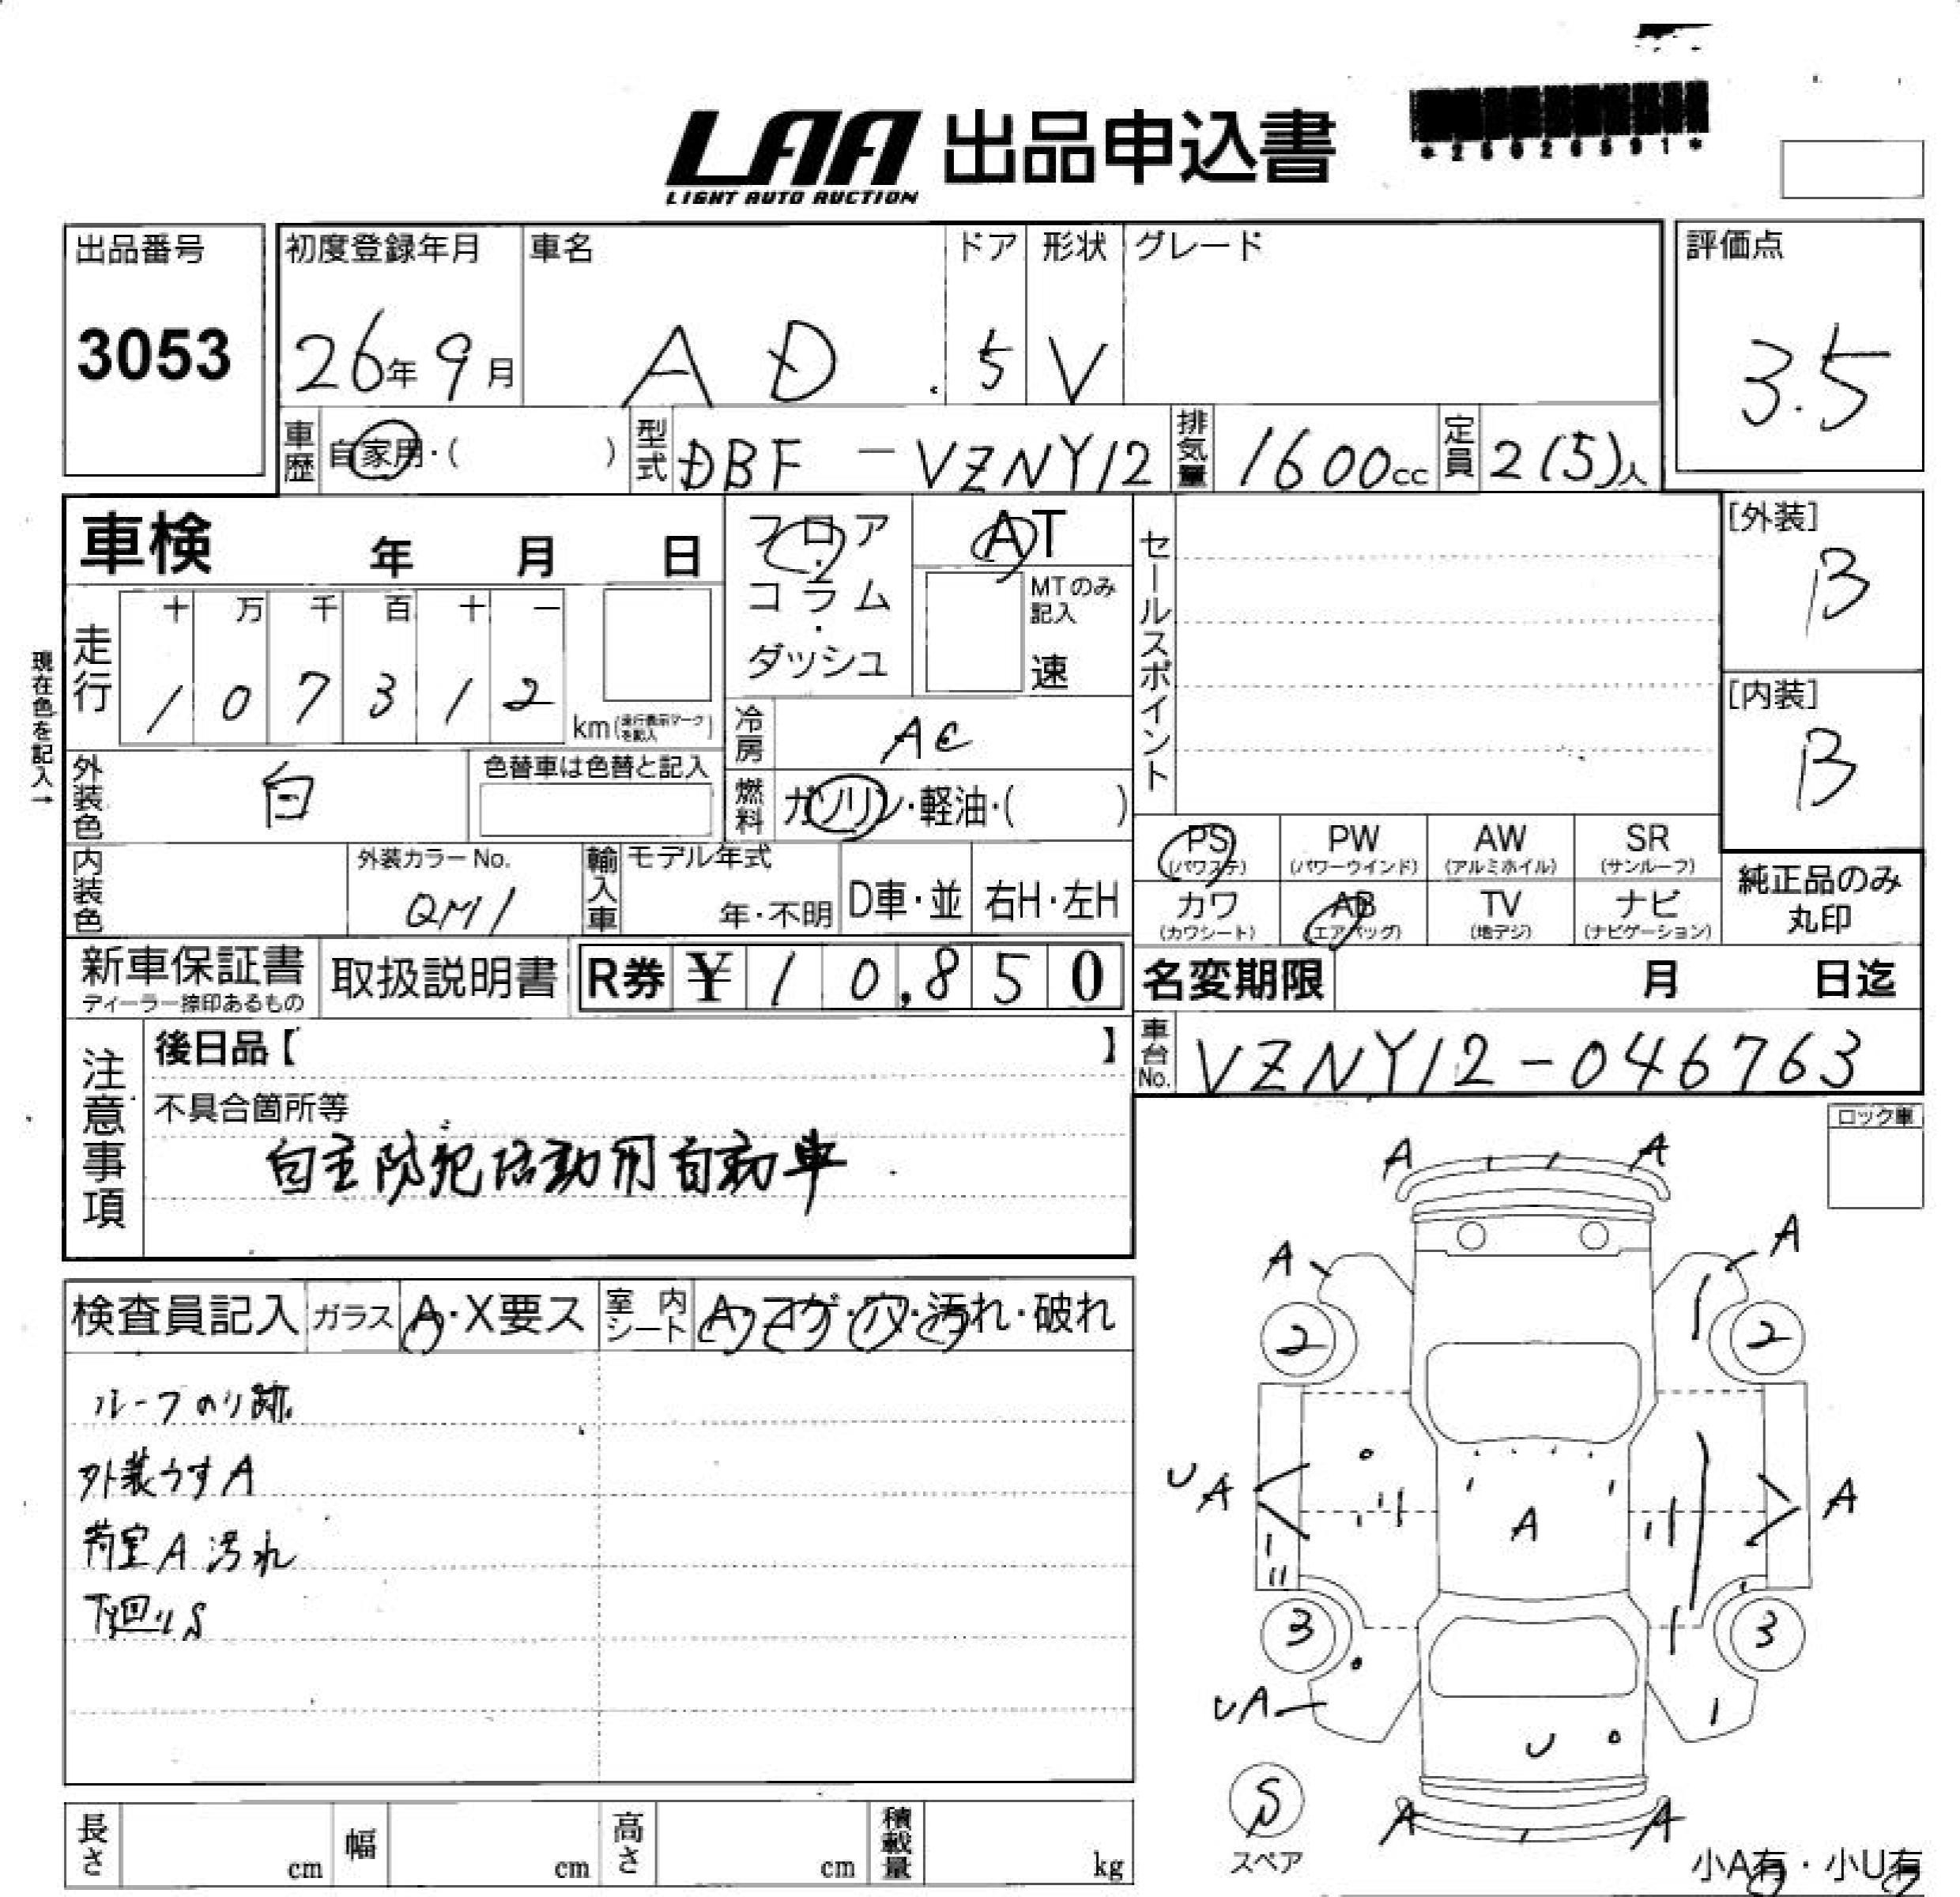 LAA 出品申込書
LIGHT AUTO AUCTION
*25026591*
出品番号
3053
初度登録年月
26年9月
車名
AD
ドア
5
形状
V
グレード
評価点
3.5
車歴
自家用・( )
型式
DBF-VZNY12
排気量
1600cc
定員
2(5)人
車検 年 月 日
フロア・コラム・ダッシュ
AT
MTのみ記入
速
セールスポイント
[外装]
B
[内装]
B
現在色を記入→
走行
十 万 千 百 十 一
1 0 7 3 1 2
km(走行表示マークを記入)
冷房
AC
外装色
白
色替車は色替と記入
燃料
ガソリン・軽油・( )
PS (パワステ)
PW (パワーウインド)
AW (アルミホイル)
SR (サンルーフ)
内装色
外装カラーNo.
QM1
輸入車
モデル年式
年・不明
D車・並
右H・左H
カワ (カワシート)
AB (エアバッグ)
TV (地デジ)
ナビ (ナビゲーション)
純正品のみ丸印
新車保証書
ディーラー捺印あるもの
取扱説明書
R券 ¥10,850
名変期限 月 日迄
車台No.
VZNY12-046763
注意事項
後日品【 】
不具合箇所等
自主防犯活動用自動車
ロック車
検査員記入
ガラス
A・X要ス
室内シート
A・コゲ・穴・汚れ・破れ
ルーフのり跡
外装うすA
荷室A 汚れ
下廻りS
A A
A A
2 2
UA A A
3 3
UA
U
S
スペア
A A
小A有・小U有
長さ cm
幅 cm
高さ cm
積載量 kg